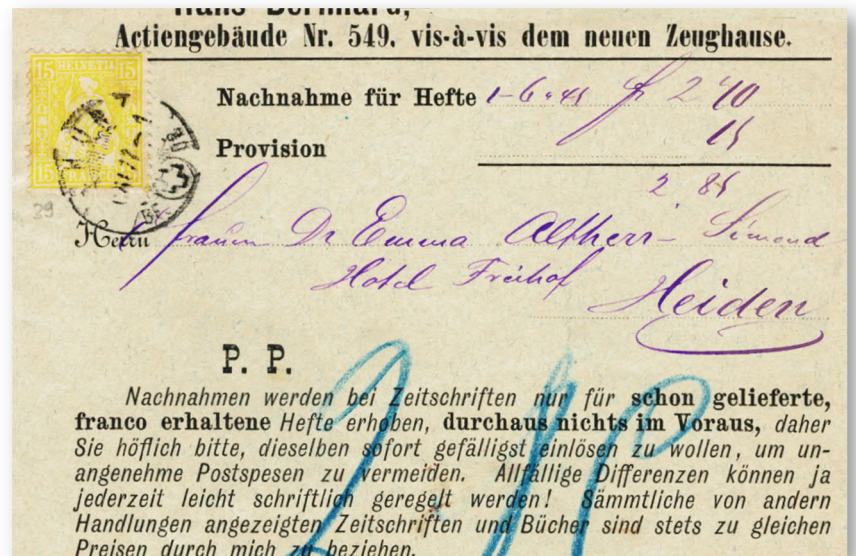 Hans Bernhard,
Actiengebäude Nr. 549. vis-à-vis dem neuen Zeughause.
15 HELVETIA 15
15 FRANCO 15
Nachnahme für Hefte 1-6 fr 2 70
Provision 15
2 85
29
Herrn Frauen Dr Emma Altherr- Simond
Hotel Freihof
Heiden
P. P.
Nachnahmen werden bei Zeitschriften nur für schon gelieferte,
franco erhaltene Hefte erhoben, durchaus nichts im Voraus, daher
Sie höflich bitte, dieselben sofort gefälligst einlösen zu wollen, um un-
angenehme Postspesen zu vermeiden. Allfällige Differenzen können ja
jederzeit leicht schriftlich geregelt werden! Sämmtliche von andern
Handlungen angezeigten Zeitschriften und Bücher sind stets zu gleichen
Preisen durch mich zu beziehen.